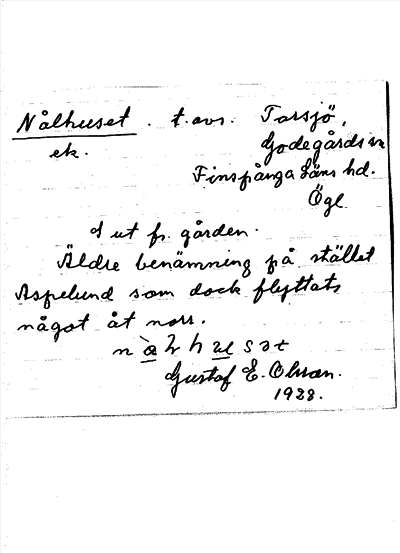 Nålhuset . t.avs. Tarsjö,
ek. Godegårds sn
Finspånga Läns hd.
Ögl
ut fr. gården.
Äldre benämning på stället
Aspelund som dock flyttats
något åt norr.
Gustaf E. Olsson.
1928.